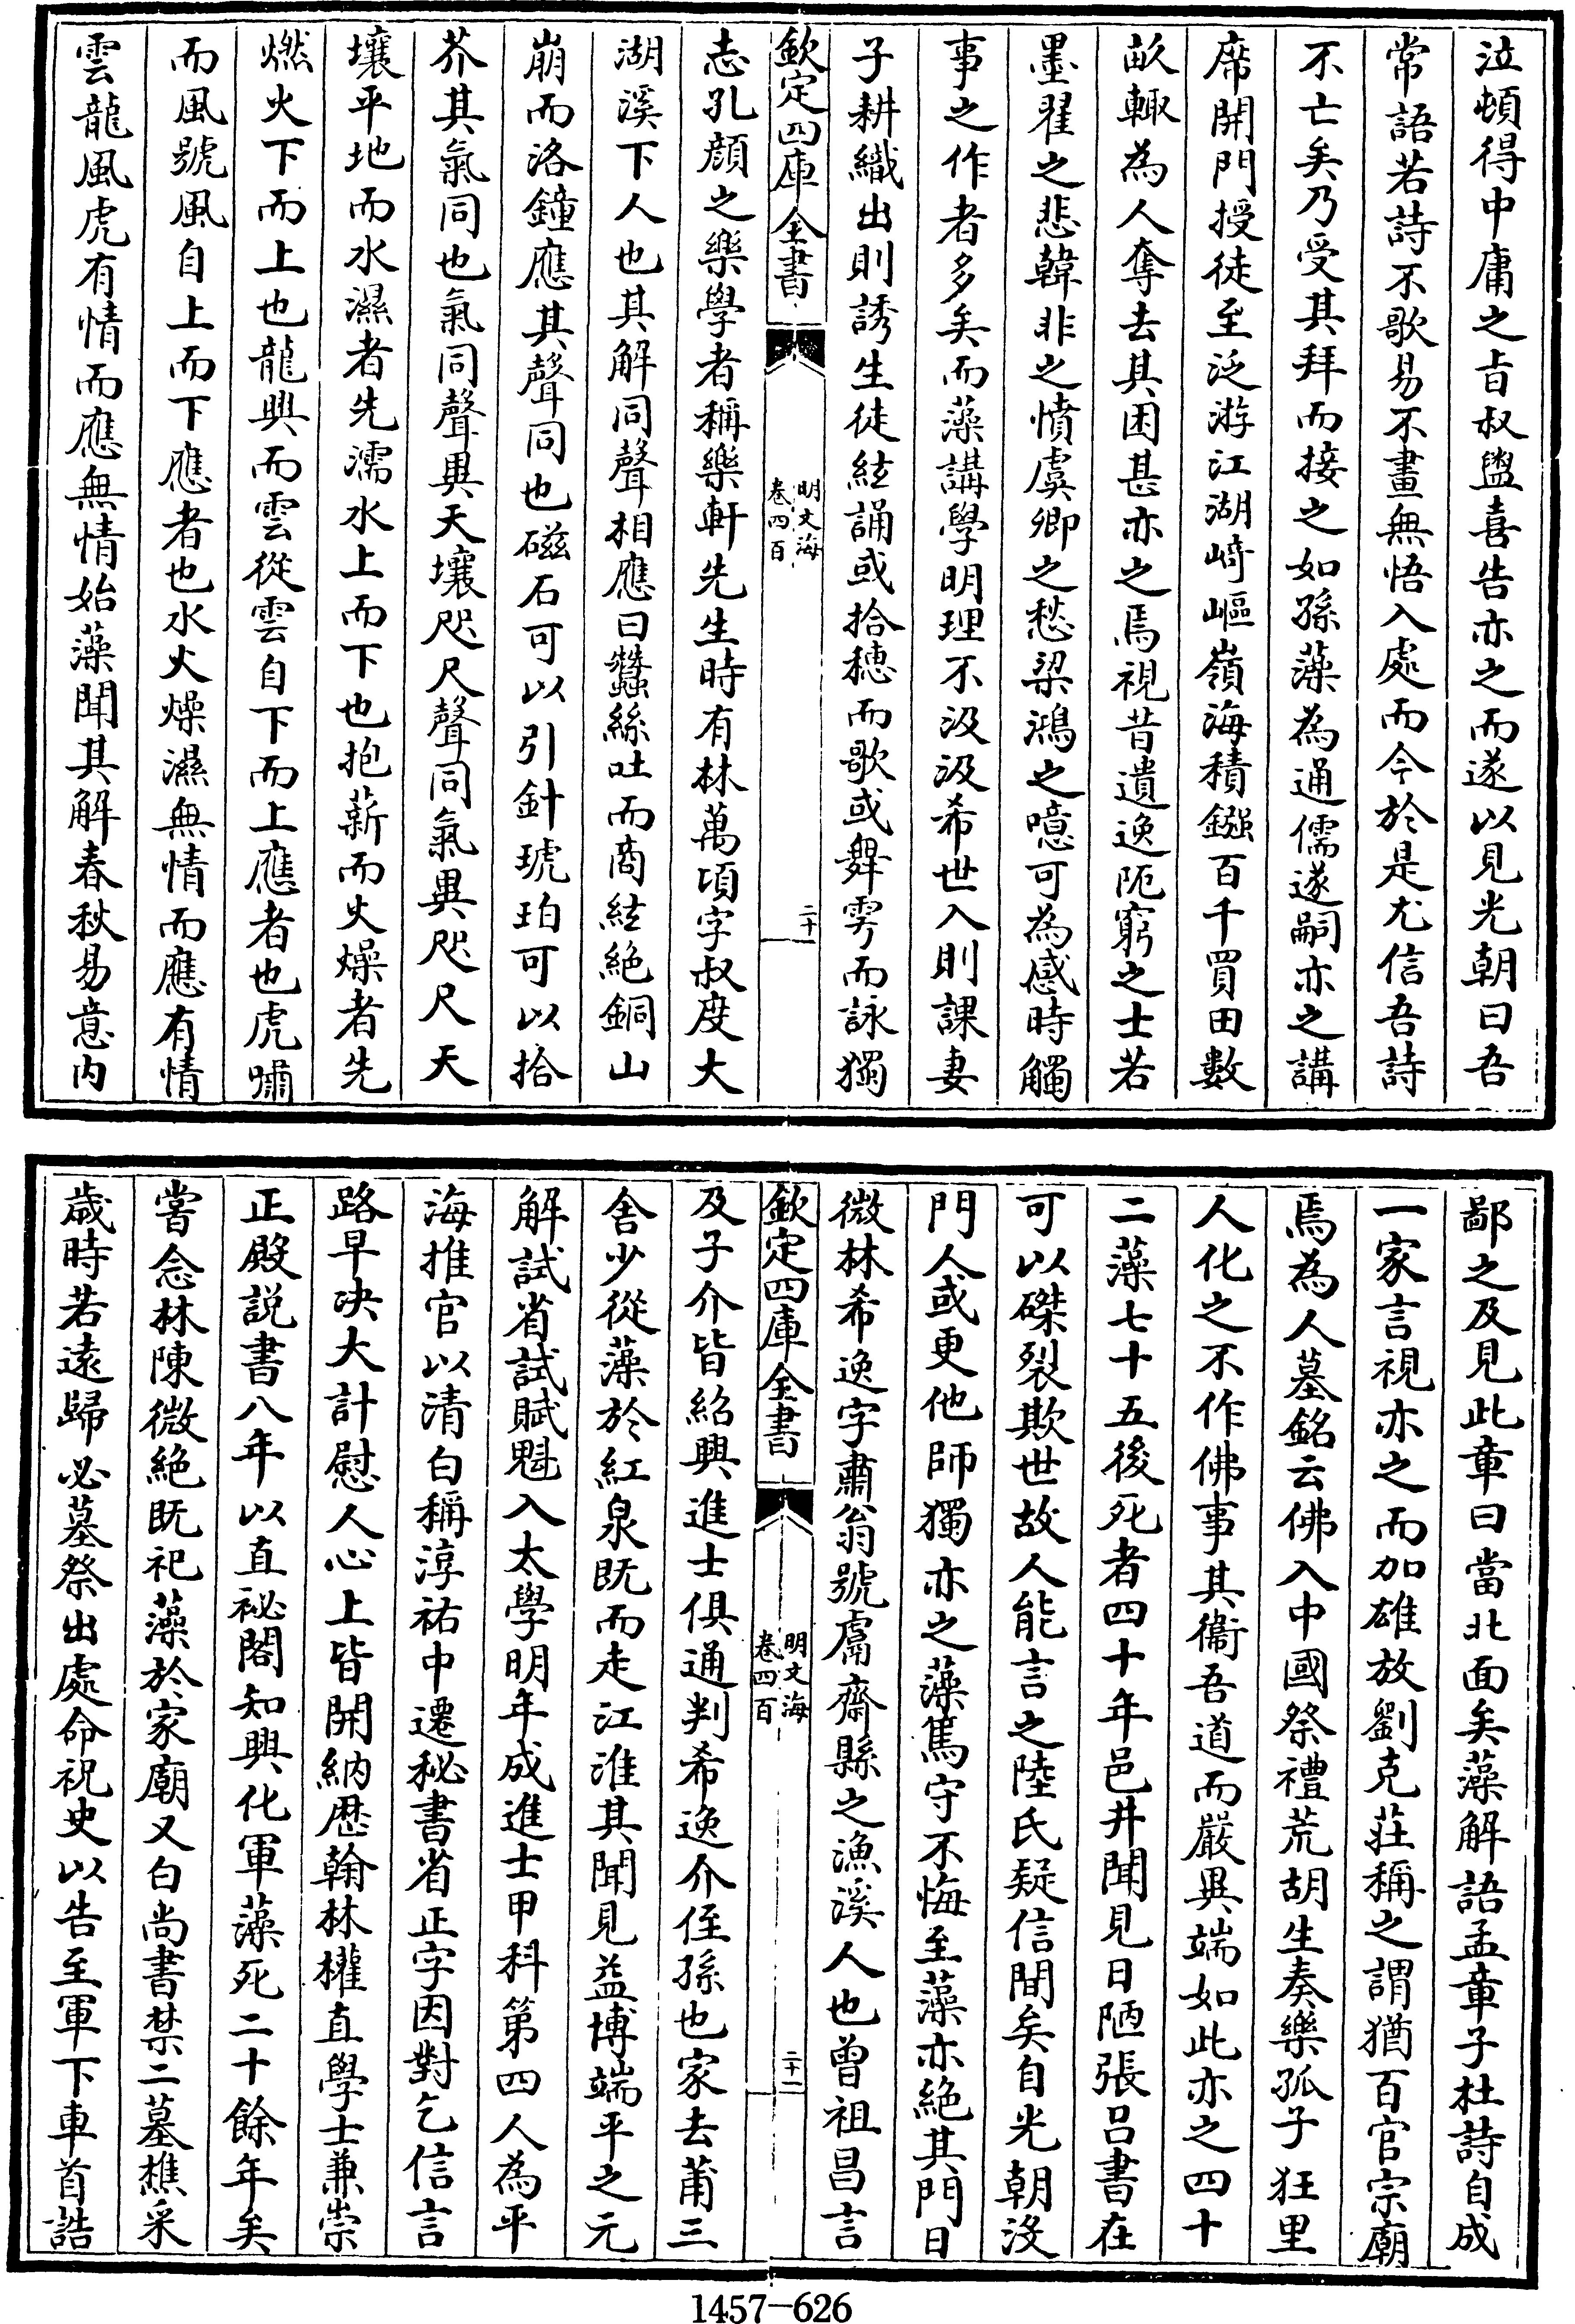 泣頓得中庸之旨叔盥喜告亦之而遂以見光朝曰吾
常語若詩不歌易不畫無悟入處而今於是尤信吾詩
不亡矣乃受其拜而接之如孫藻為通儒遂嗣亦之講
席開門授徒至泛游江湖崎嶇嶺海積鏹百千買田數
畝輙為人奪去其困甚亦之焉視昔遺逸阨窮之士若
墨翟之悲韓非之憤虞卿之愁梁鴻之噫可為感時觸
事之作者多矣而藻講學明理不汲汲希世入則課妻
子耕織出則誘生徒絃誦或拾穗而歌或舞雩而詠獨
欽定四庫全書
明文海
卷四百
二十
志孔顔之樂學者稱樂軒先生時有林萬頃字叔度大
湖溪下人也其解同聲相應曰蠶絲吐而商絃絶銅山
崩而洛鐘應其聲同也磁石可以引針琥珀可以拾
芥其氣同也氣同聲異天壤咫尺聲同氣異咫尺天
壤平地而水濕者先濡水上而下也抱薪而火燥者先
燃火下而上也龍興而雲從雲自下而上應者也虎嘯
而風號風自上而下應者也水火燥濕無情而應有情
雲龍風虎有情而應無情始藻聞其解春秋易意内
鄙之及見此章曰當北面矣藻解語孟章子杜詩自成
一家言視亦之而加雄放劉克莊稱之謂猶百官宗廟
焉為人墓銘云佛入中國祭禮荒胡生奏樂孤子狂里
人化之不作佛事其衞吾道而嚴異端如此亦之四十
二藻七十五後死者四十年邑井聞見日陋張吕書在
可以磔裂欺世故人能言之陸氏疑信間矣自光朝沒
門人或更他師獨亦之藻篤守不悔至藻亦絶其門日
微林希逸字肅翁號鬳齋縣之漁溪人也曾祖昌言
欽定四庫全書
明文海
卷四百
二十一
及子介皆紹興進士俱通判希逸介侄孫也家去莆三
舍少從藻於紅泉既而走江淮其聞見益博端平之元
解試省試賦魁入太學明年成進士甲科第四人為平
海推官以清白稱淳祐中遷秘書省正字因對乞信言
路早决大計慰人心上皆開納歴翰林權直學士兼崇
正殿説書八年以直祕閣知興化軍藻死二十餘年矣
嘗念林陳微絶既祀藻於家廟又白尚書禁二墓樵采
歳時若遠歸必墓祭出處命祝史以告至軍下車首誥
1457—626